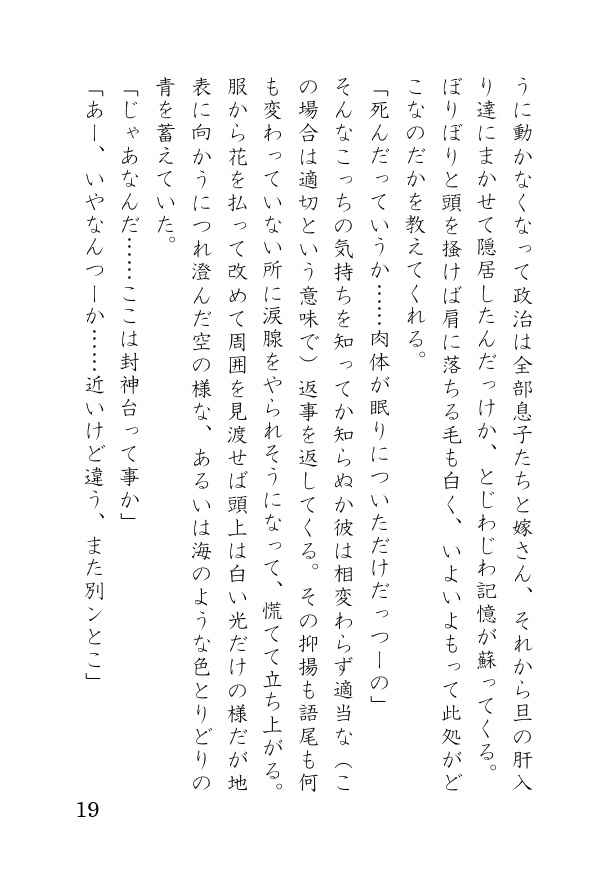 うに動かなくなって政治は全部息子たちと嫁さん、それから旦の肝入
り達にまかせて隠居したんだっけか、とじわじわ記憶が蘇ってくる。
ぼりぼりと頭を掻けば肩に落ちる毛も白く、いよいよもって此処がど
こなのだかを教えてくれる。
「死んだっていうか……肉体が眠りについただけだっつーの」
そんなこっちの気持ちを知ってか知らぬか彼は相変わらず適当な（こ
の場合は適切という意味で）返事を返してくる。その抑揚も語尾も何
も変わっていない所に涙腺をやられそうになって、慌てて立ち上がる。
服から花を払って改めて周囲を見渡せば頭上は白い光だけの様だが地
表に向かうにつれ澄んだ空の様な、あるいは海のような色とりどりの
青を蓄えていた。
「じゃあなんだ……ここは封神台って事か」
「あー、いやなんつーか……近いけど違う、また別ンとこ」
19